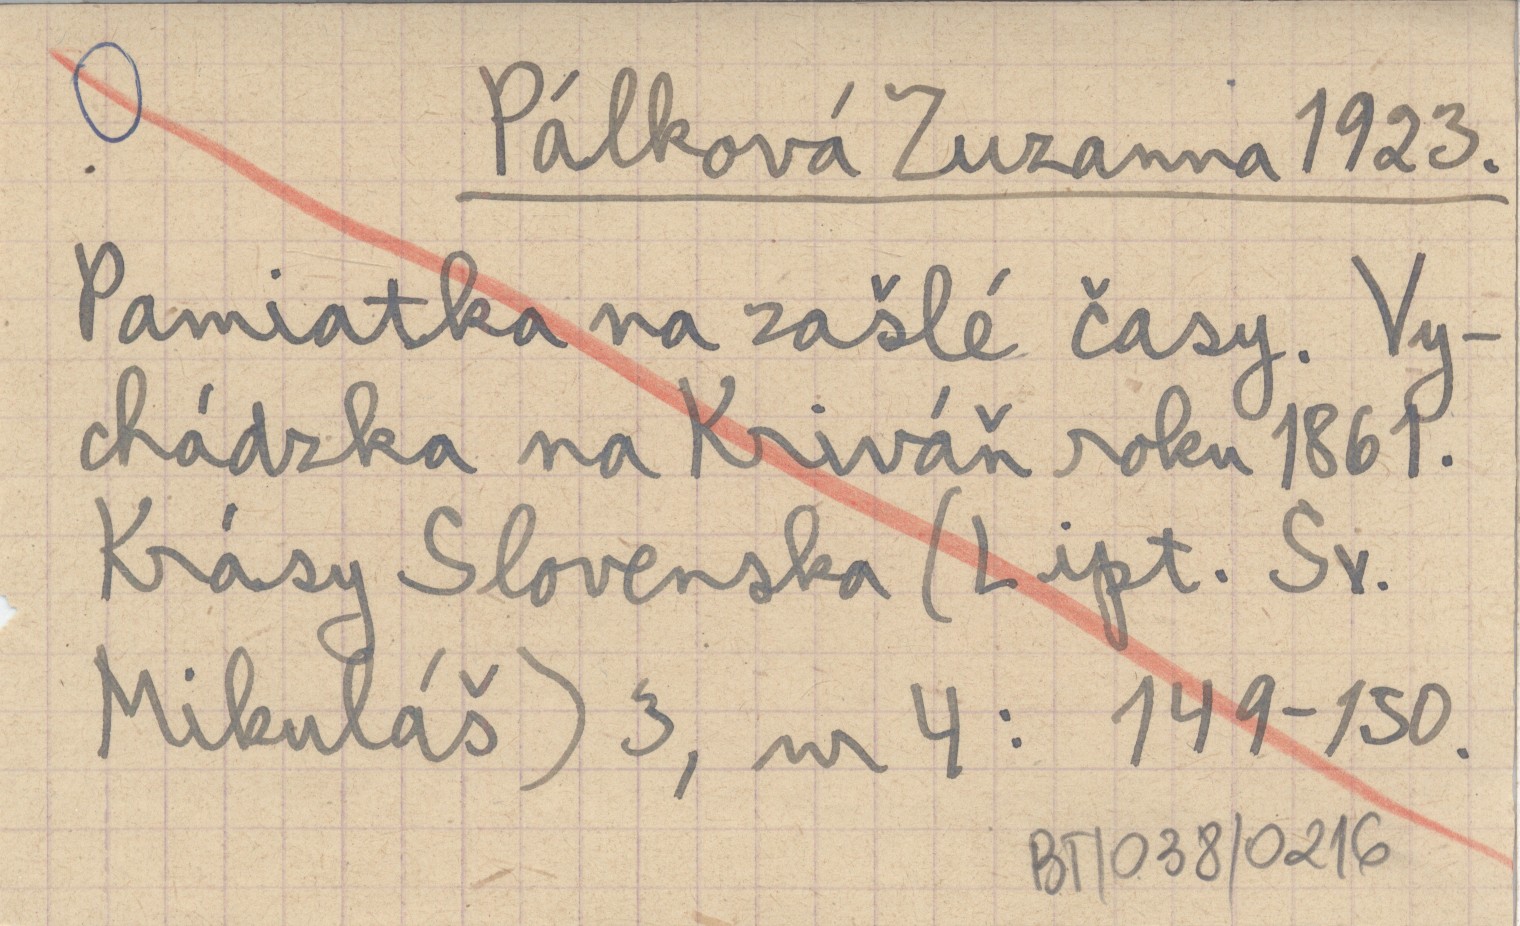 Pálková Zuzanna 1923.
Pamiatka na zašlé časy. Vy-
chádzka na Kriváň roku 1861.
Krásy Slovenska (Lipt. Sv.
Mikuláš) 3, nr 4: 149-150.
BT/038/0216